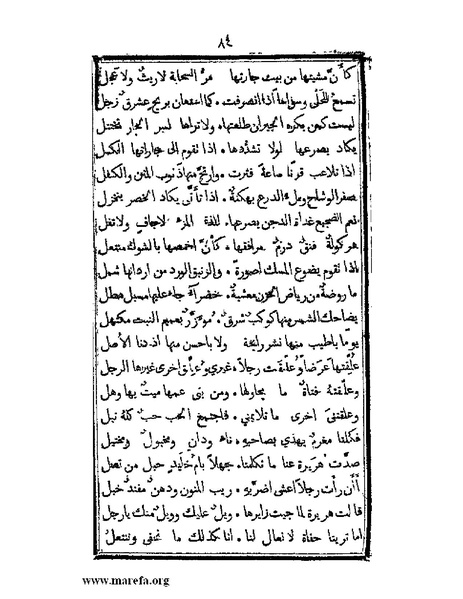 ٨٤
كأنّ مشيتها من بيت جارتها مرّ السحابة لا ريث ولا عجل
تسمع للحلى وسواسا اذا انصرفت ٠ كما استعان بريح عشرق زجل
ليست كمن يكره الجيران طلعتها ٠ ولا تراها لسر الجار تختتل
يكاد يصرعها لولا تشدّدها ٠ اذا تقوم الى جاراتها الكسل
اذا تلاعب قرنا ساعة فترت ٠ وارتج منها ذنوب المتن والكفل
صفر الوشاح وملء الدرع بهكنة ٠ اذا تأتّى يكاد الخصر ينخزل
نعم الضجيع غداة الدجن يصرعها ٠ للذة المرء لا جاف ولا تفل
هركولة فنق درم مرافقها ٠ كأنّ اخمصها بالشوك منتعل
اذا تقوم يضوع المسك اصورة ٠ والزنبق الورد من اردانها شمل
ما روضة من رياض الحزن معشبة ٠ خضراء جاد عليها مسبل هطل
يضاحك الشمس منها كوكب شرق ٠ مؤزّر بعميم النبت مكتهل
يوما باطيب منها نشر رايحة ولا باحسن منها اذ دنا الأصل
علّقتها عرضا وعلّقت رجلا ٠ غيري وعلّق اخرى غيرها الرجل
وعلّقته فتاة ما يحاولها ٠ ومن بنى عمها ميت بها وهل
وعلقتنى اخرى ما تلائمني ٠ فاجتمع الحب حب كله تبل
فكلنا مغرم يهذي بصاحبه ٠ ناء ودان ومخبول ومختبل
صدّت هريرة عنا ما تكلمنا ٠ جهلا بام خليد حبل من تصل
أأن رأت رجلا اعشى اضرّ به ٠ ريب المنون ودهر مفند خبل
قالت هريرة لما جيت زايرها ٠ ويل عليك وويل منك يا رجل
اما ترينا حفاة لا نعال لنا ٠ انا كذلك ما نحفى وننتعل
www.marefa.org